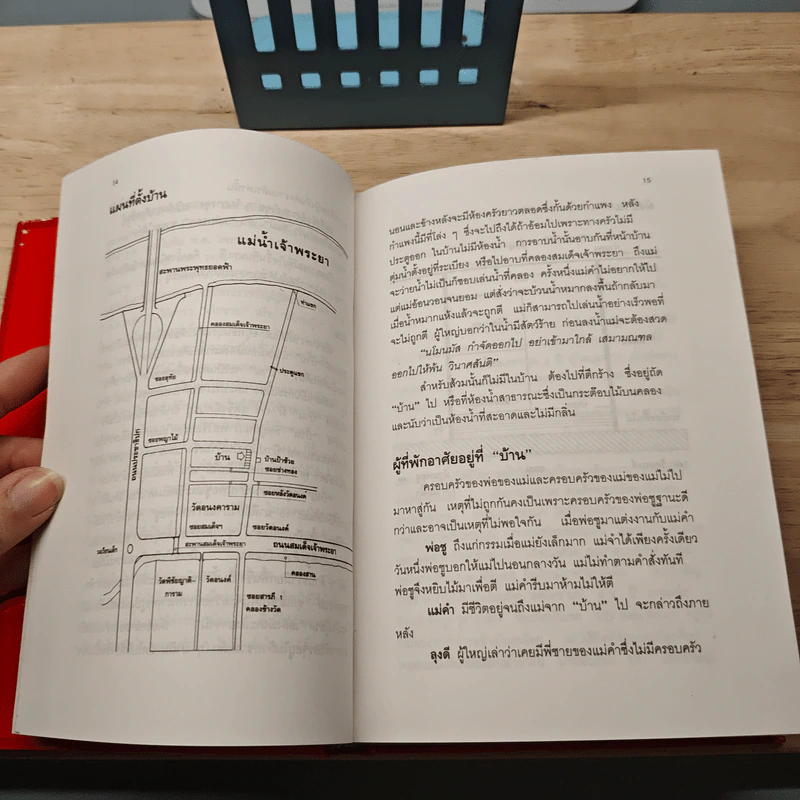 14
แผนที่ตั้งบ้าน
แม่น้ำเจ้าพระยา
สะพานพระพุทธยอดฟ้า
ท่าแขก
คลองสมเด็จเจ้าพระยา
ประตูแขก
ซอยอุทัย
ถนนประชาธิปก
ซอยพญาไม้
บ้าน
บ้านป้าช้วย
ซอยช่างทอง
ซอยหลังวัดอนงค์
วัดอนงคาราม
ซอยสมเด็จฯ
ซอยวัดอนงค์
วงเวียนเล็ก
สะพานสมเด็จเจ้าพระยา
ถนนสมเด็จเจ้าพระยา
คลองสาน
วัดพิชัยญาติ-
การาม
วัดอนงค์
ซอยสารภี 1
คลองข้างวัด
15
นอนและข้างหลังจะมีห้องครัวยาวตลอดซึ่งกั้นด้วยกำแพง หลัง
กำแพงนี้มีที่โล่ง ๆ ซึ่งจะไปถึงได้ถ้าอ้อมไปเพราะทางครัวไม่มี
ประตูออก ในบ้านไม่มีห้องน้ำ การอาบน้ำนั้นอาบกันที่หน้าบ้าน
ตุ่มน้ำตั้งอยู่ที่ระเบียง หรือไปอาบที่คลองสมเด็จเจ้าพระยา ถึงแม่
จะว่ายน้ำไม่เป็นก็ชอบเล่นน้ำที่คลอง ครั้งหนึ่งแม่คำไม่อยากให้ไป
แต่แม่อ้อนวอนจนยอม แต่สั่งว่าจะบ้วนน้ำหมากลงพื้นถ้ากลับมา
เมื่อน้ำหมากแห้งแล้วจะถูกตี แม่ก็สามารถไปเล่นน้ำอย่างเร็วพอที่
จะไม่ถูกตี ผู้ใหญ่บอกว่าในน้ำมีสัตว์ร้าย ก่อนลงน้ำแม่จะต้องสวด
“นโมนมัส กำจัดออกไป อย่าเข้ามาใกล้ เสมามณฑล
ออกไปให้พ้น วินาศสันติ”
สำหรับส้วมนั้นก็ไม่มีในบ้าน ต้องไปที่ตึกร้าง ซึ่งอยู่ถัด
“บ้าน” ไป หรือที่ห้องน้ำสาธารณะซึ่งเป็นกระต๊อบไม้บนคลอง
และนับว่าเป็นห้องน้ำที่สะอาดและไม่มีกลิ่น
ผู้ที่พักอาศัยอยู่ที่ “บ้าน”
ครอบครัวของพ่อของแม่และครอบครัวของแม่ของแม่ไม่ไป
มาหาสู่กัน เหตุที่ไม่ถูกกันคงเป็นเพราะครอบครัวของพ่อชูฐานะดี
กว่าและอาจเป็นเหตุที่ไม่พอใจกัน เมื่อพ่อชูมาแต่งงานกับแม่คำ
พ่อชู ถึงแก่กรรมเมื่อแม่ยังเล็กมาก แม่จำได้เพียงครั้งเดียว
วันหนึ่งพ่อชูบอกให้แม่ไปนอนกลางวัน แม่ไม่ทำตามคำสั่งทันที
พ่อชูจึงหยิบไม้มาเพื่อตี แม่คำรีบมาห้ามไม่ให้ตี
แม่คำ มีชีวิตอยู่จนถึงแม่จาก “บ้าน” ไป จะกล่าวถึงภาย
หลัง
ลุงดี ผู้ใหญ่เล่าว่าเคยมีพี่ชายของแม่คำซึ่งไม่มีครอบครัว